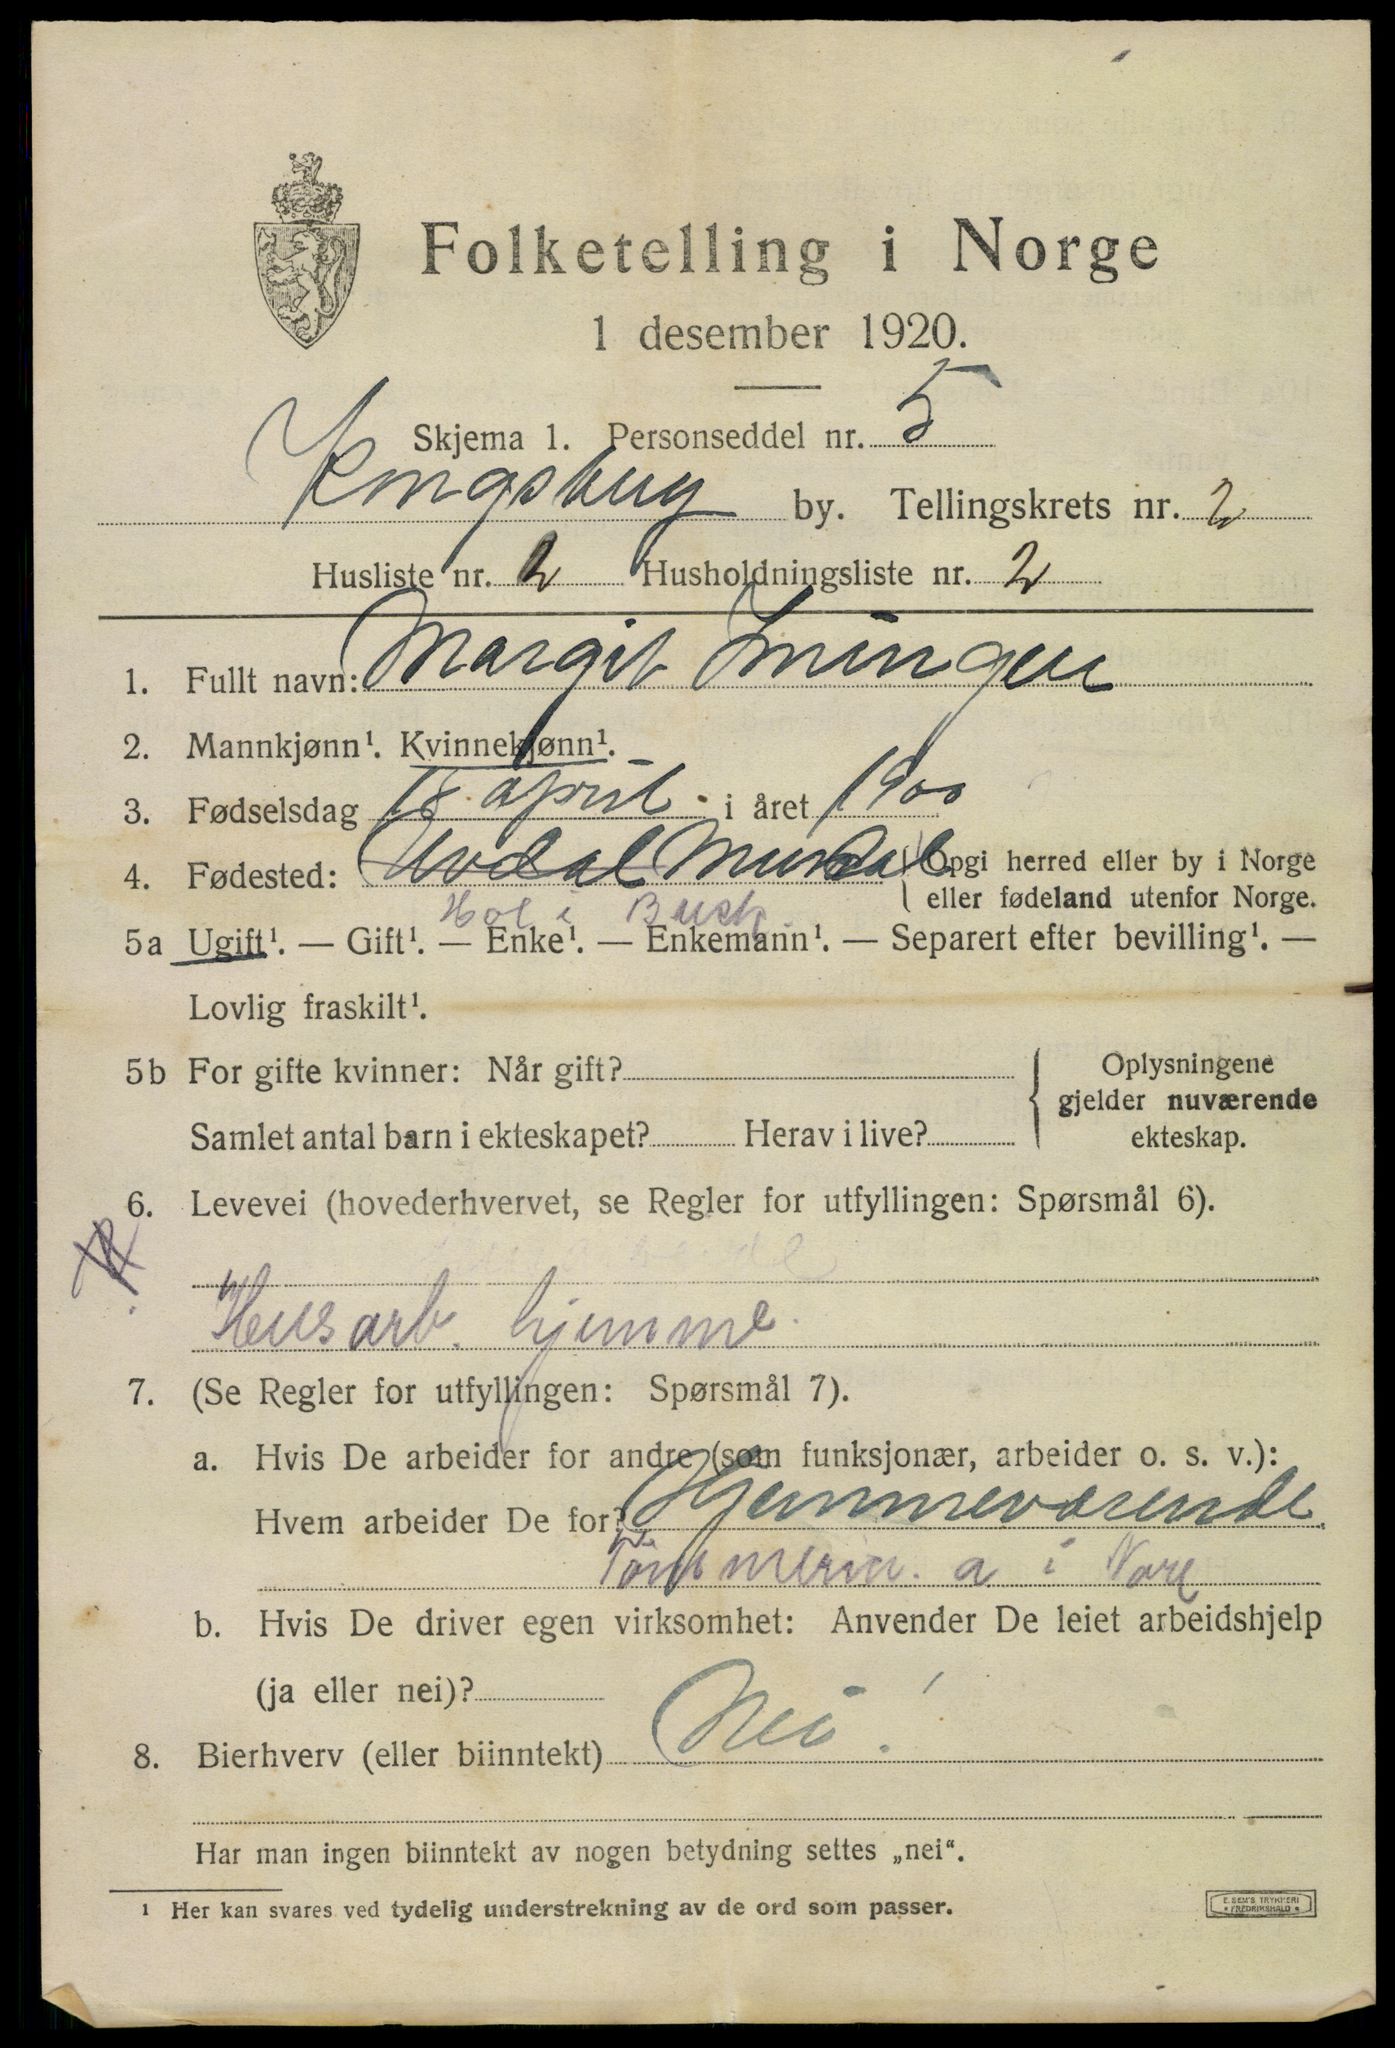 Folketelling i Norge
1 desember 1920.
Skjema 1. Personseddel nr. 5
Kongsberg by. Tellingskrets nr. 2
Husliste nr. 2 Husholdningsliste nr. 2
1. Fullt navn: Margit Imingen
2. Mannkjønn¹. Kvinnekjønn¹.
3. Fødselsdag 18 april i året 1900
4. Fødested: Uvdal Opgi herred eller by i Norge
eller fødeland utenfor Norge.
Hol i Busk.
5a Ugift¹. — Gift¹. — Enke¹. — Enkemann¹. — Separert efter bevilling¹. —
Lovlig fraskilt¹.
5b For gifte kvinner: Når gift?
Samlet antal barn i ekteskapet? Herav i live?
Oplysningene
gjelder nuværende
ekteskap.
6. Levevei (hovederhvervet, se Regler for utfyllingen: Spørsmål 6).
Husarb. hjemme.
7. (Se Regler for utfyllingen: Spørsmål 7).
a. Hvis De arbeider for andre (som funksjonær, arbeider o. s. v.):
Hvem arbeider De for? Hjemmeværende
a i Nore
b. Hvis De driver egen virksomhet: Anvender De leiet arbeidshjelp
(ja eller nei)?
8. Bierhverv (eller biinntekt) Nei!
Har man ingen biinntekt av nogen betydning settes „nei“.
¹ Her kan svares ved tydelig understrekning av de ord som passer.
E. SEM'S TRYKKERI
FREDRIKSHALD